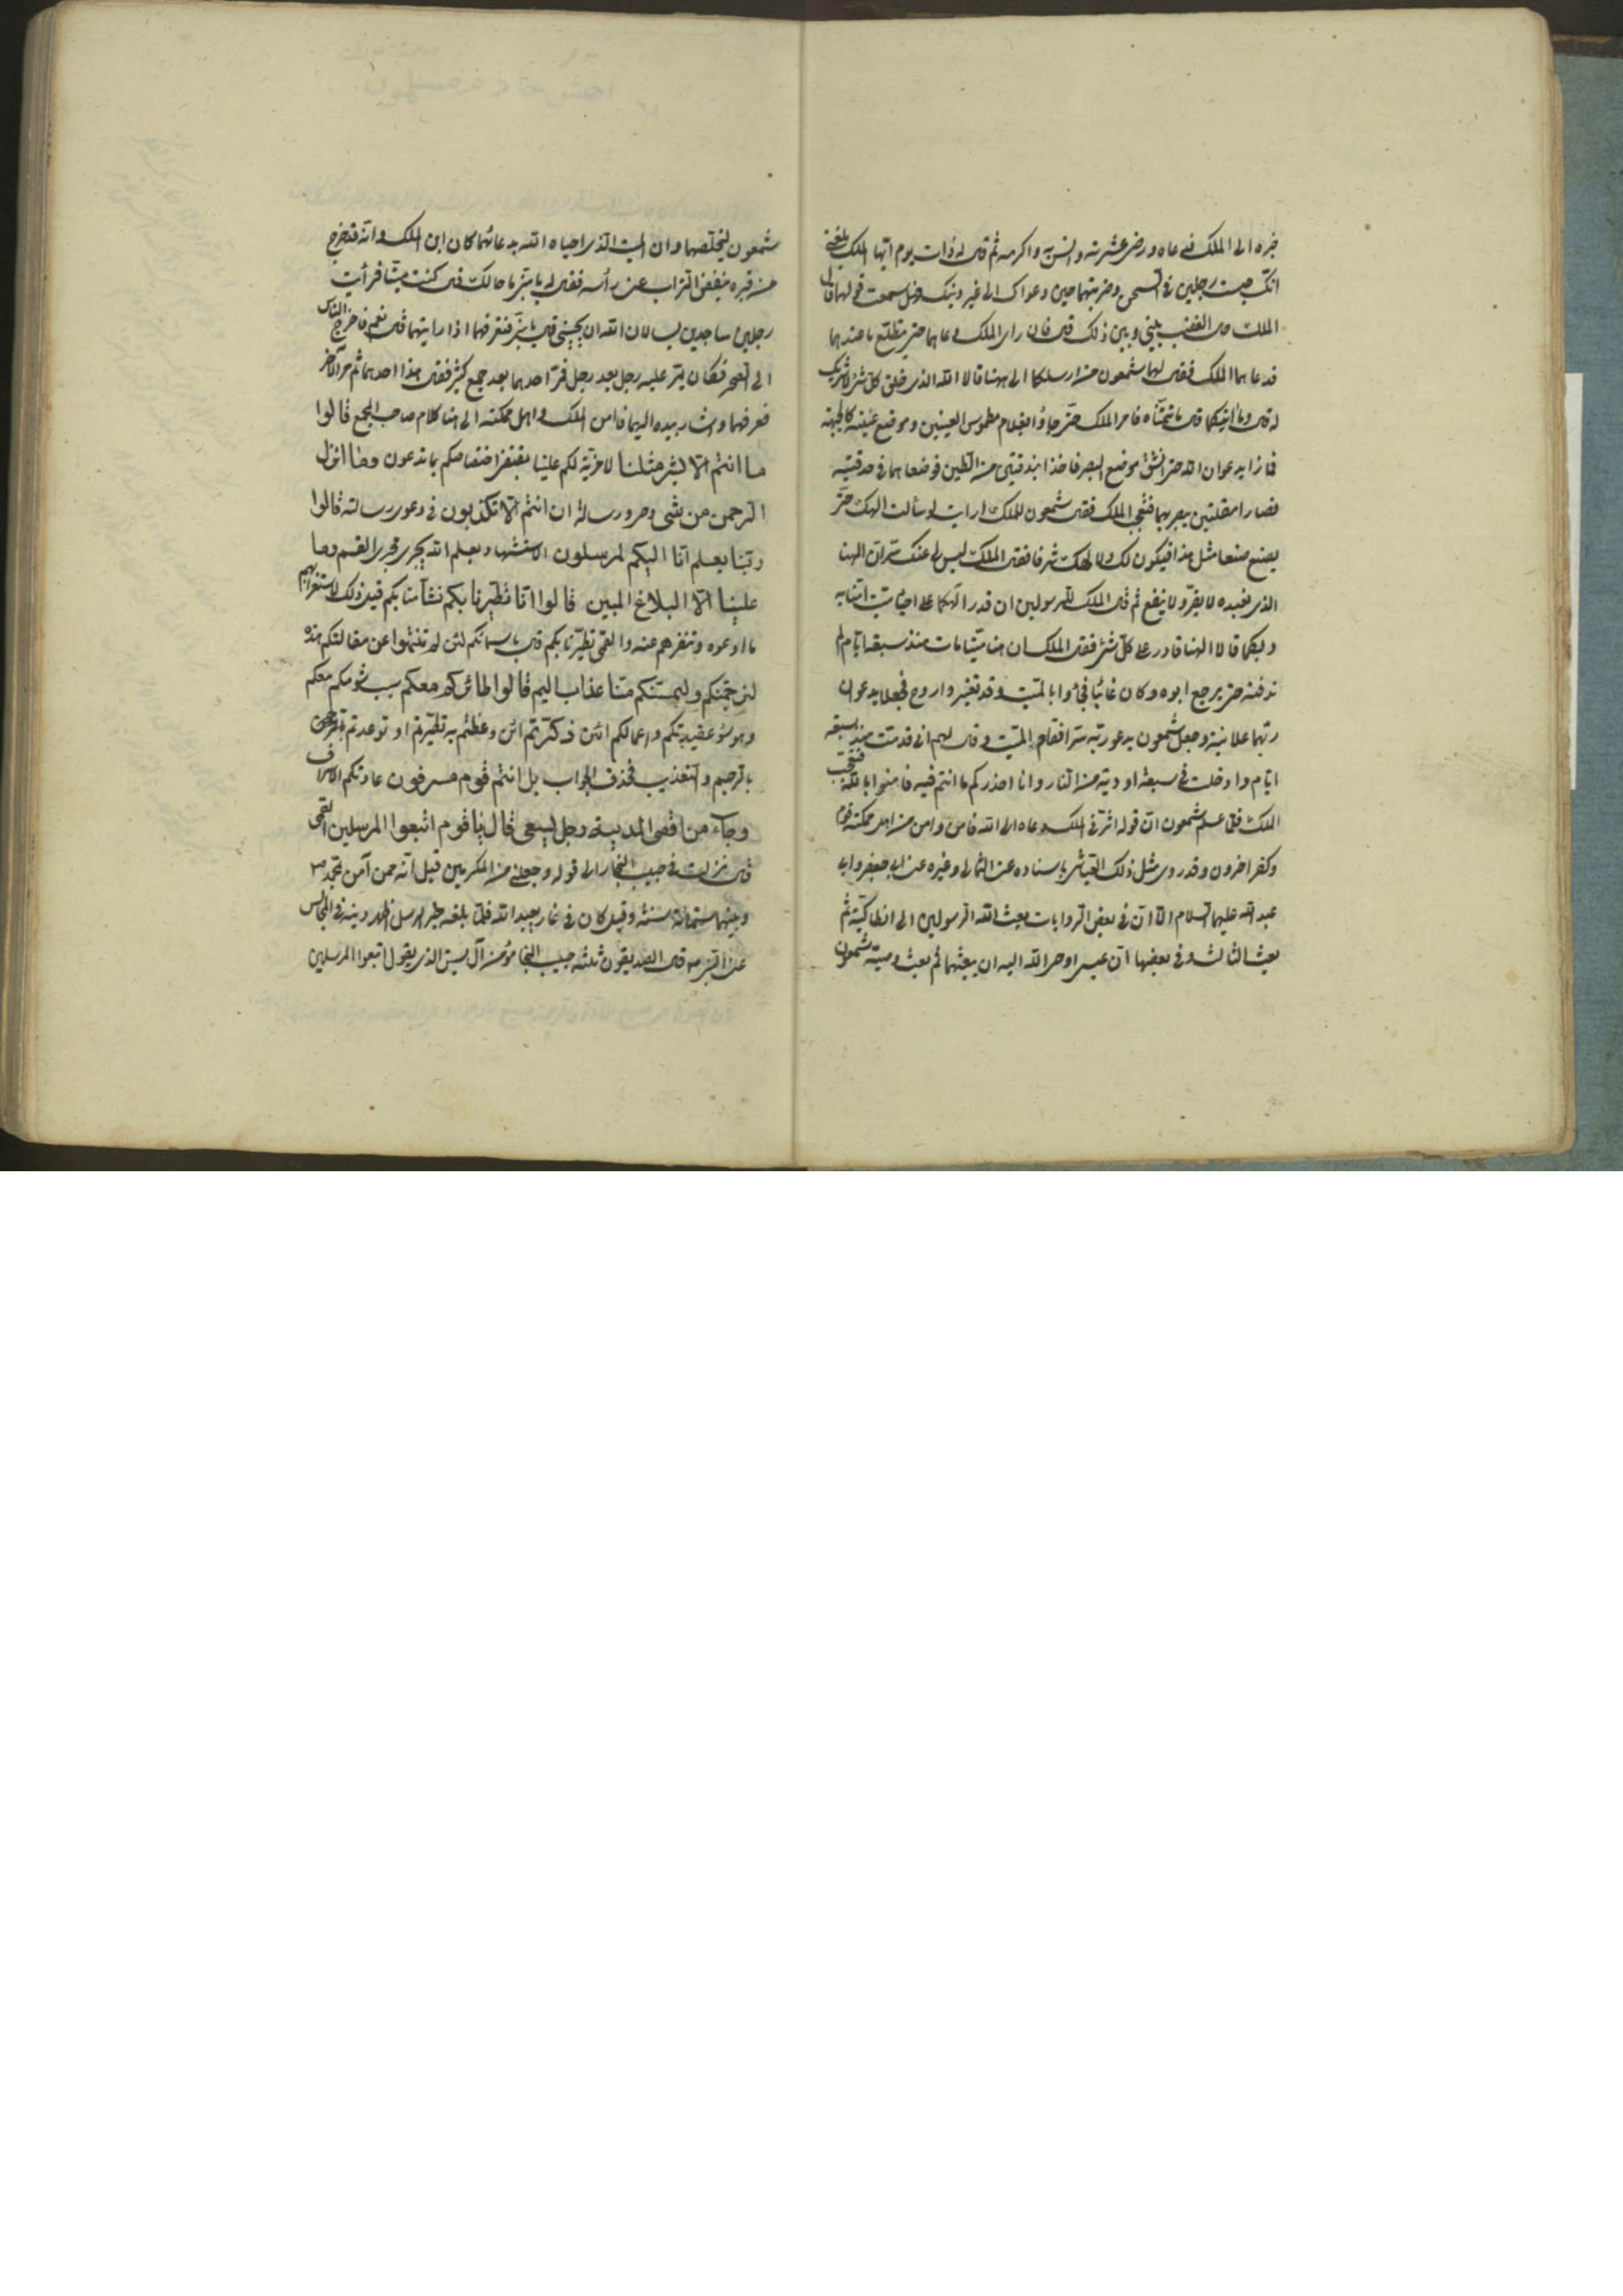 خبره الى الملك فدعاه ورضى عشرته وانس به واكرمه ثم قال له ذات يوم ايها الملك بلغنى
انك حبست رجلين فى السجن وضربتهما حين دعواك الى غير دينك فهل سمعت قولهما قال
الملك حال الغضب بينى وبين ذلك قال فان راى الملك دعاهما حتى يتطلع ما عندهما
فدعاهما الملك فقال لهما شمعون من ارسلكما الى ههنا قالا الله الذى خلق كل شئ لا شريك
له قال وما آيتكما قالا ما تتمناه فامر الملك حتى جاؤا بغلام مطموس العينين وموضع عينيه كالجبهة
فما زالا يدعوان الله حتى انشق موضع البصر فاخذا بندقتين من الطين فوضعاهما فى حدقتيه
فصارا مقلتين يبصر بهما فتعجب الملك فقال شمعون للملك ارايت لو سألت الهك حتى
يصنع صنعا مثل هذا فيكون لك ولالهك شرفا فقال الملك ليس لى عنك سر ان الهنا
الذى نعبده لا يضر ولا ينفع ثم قال الملك للرسولين ان قدر الهكما على احياء ميت امنا به
وبكما قالا الهنا قادر على كل شئ فقال الملك ان هنا ميتا مات منذ سبعة ايام لم
ندفنه حتى يرجع ابوه وكان غائبا فجاؤا بالميت وقد تغير واروح فجعلا يدعوان
ربهما علانية وجعل شمعون يدعو ربه سرا فقام الميت وقال لهم انى قدمت منذ سبعة
ايام وادخلت فى سبعة اودية من النار وانا احذركم ما انتم فيه فامنوا بالله فتعجب
الملك فلما علم شمعون ان قوله اثر فى الملك دعاه الى الله فامن وامن من اهل مملكته قوم
وكفر اخرون وقد روى مثل ذلك العياشى باسناده عن الثمالى وغيره عن ابى جعفر وابى
عبد الله عليهما السلام الا ان فى بعض الروايات بعث الله الرسولين الى انطاكية ثم
بعث الثالث وفى بعضها ان عيسى اوحى الله اليه ان يبعثهما ثم بعث وصيه شمعون
شمعون ليخلصهما وان الميت الذى احياه الله بدعائهما كان ابن الملك وانه قد خرج
من قبره ينفض التراب عن رأسه فقال له يا بنى ما حالك قال كنت ميتا فرأيت
رجلين ساجدين يسألان الله ان يحيينى قال يا بنى فتعرفهما اذا رايتهما قال نعم فاخرج الناس
الى الصحراء فكان يمر عليه رجل بعد رجل فمر احدهما بعد جمع كثير فقال هذا احدهما ثم مر الآخر
فعرفهما واشار بيده اليهما فامن الملك واهل مملكته الى هنا كلام صاحب المجمع قالوا
ما انتم الا بشر مثلنا لا مزية لكم علينا يقتضى اختصاصكم بما تدعون وما انزل
الرحمن من شئ وحى ورسالة ان انتم الا تكذبون فى دعوى رسالته قالوا
ربنا يعلم انا اليكم لمرسلون الاستشهاد بعلم الله يجرى مجرى القسم وما
علينا الا البلاغ المبين قالوا انا تطيرنا بكم تشأمنا بكم قيل ذلك لاستغرابهم
ما ادعوه وتنفرهم عنه والقمى تطيرنا بكم قال باسمائكم لئن لم تنتهوا عن مقالتكم هذه
لنرجمنكم وليمسنكم منا عذاب اليم قالوا طائركم معكم سبب شؤمكم معكم
وهو سوء عقيدتكم واعمالكم ائن ذكرتم ائن وعظتم به تطيرتم او توعدتم
بالرجم والتعذيب فحذف الجواب بل انتم قوم مسرفون عادتكم الاسراف
وجاء من اقصى المدينة رجل يسعى قال يا قوم اتبعوا المرسلين القمى
قال نزلت فى حبيب النجار الى قوله وجعلنى من المكرمين قيل انه ممن آمن بمحمد ص
وبينهما ستمائة سنة وقيل كان فى غار يعبد الله فلما بلغه خبر الرسل اظهر دينه فى المجالس
عن النبى ص قال الصديقون ثلثة حبيب النجار مؤمن آل يس الذى يقول اتبعوا المرسلين